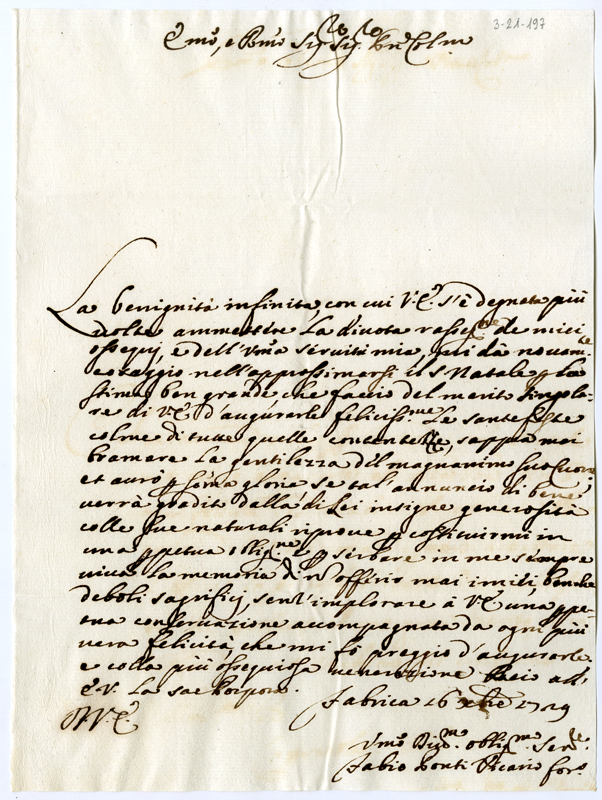 3-21-197
Emo, e Rmo Sig.r Sig.r Pne Colmo
La benignità infinita, con cui V.E. s'è degnata più
volte ammettere la divota rasseg.ne de miei
ossequj, e dell'umma servitù mia, mi dà novam.te
coraggio nell'approssimarsi il S. Natale p la
stima ben grande che faccio del merito singola-
re di V.E. d'augurarle feliciss.me le sante feste
colme di tutte quelle contentezze, sappia mai
bramare la gentilezza del magnanimo suo Cuore,
et aurò p somma gloria se tal'annuncio di bene
verrà gradito dalla di Lei insigne generosità
colle sue naturali riprove p costituirmi in
una ppetua oblig.ne e p serbare in me sempre
viva la memoria di offerirle mai simili, benche
deboli sagrifizj, senz'implorare à V.E. una ppe-
tua conservazione accompagnata da ogni più
vera felicità, che mi fò preggio d'augurarle
e colla più ossequiosa venerazione bacio all'
E.V. la sac porpora.
Fabrica 16 Xbre 1719
D V.E.
Ummo Divmo. obligmo. Serre.
Fabio Ponti Vicario for.o